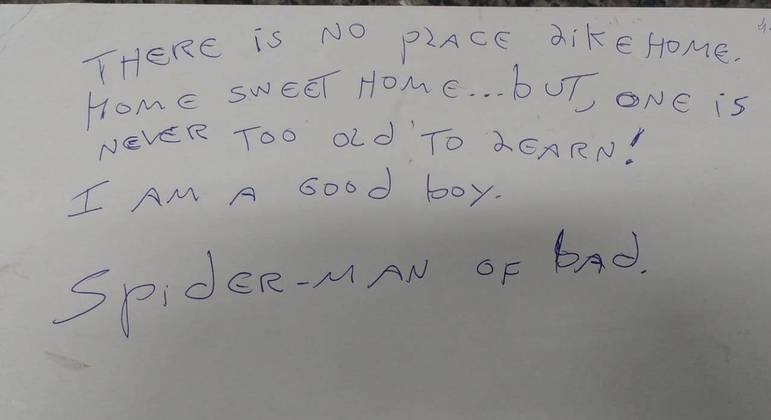 THERE iS NO PLACE LIKE HOME.
HOME SWEET HOME...bUT, ONE iS
NEVER TOO OLd TO LEARN!
I AM A GOOd boy.
SpidER-MAN OF bAd.